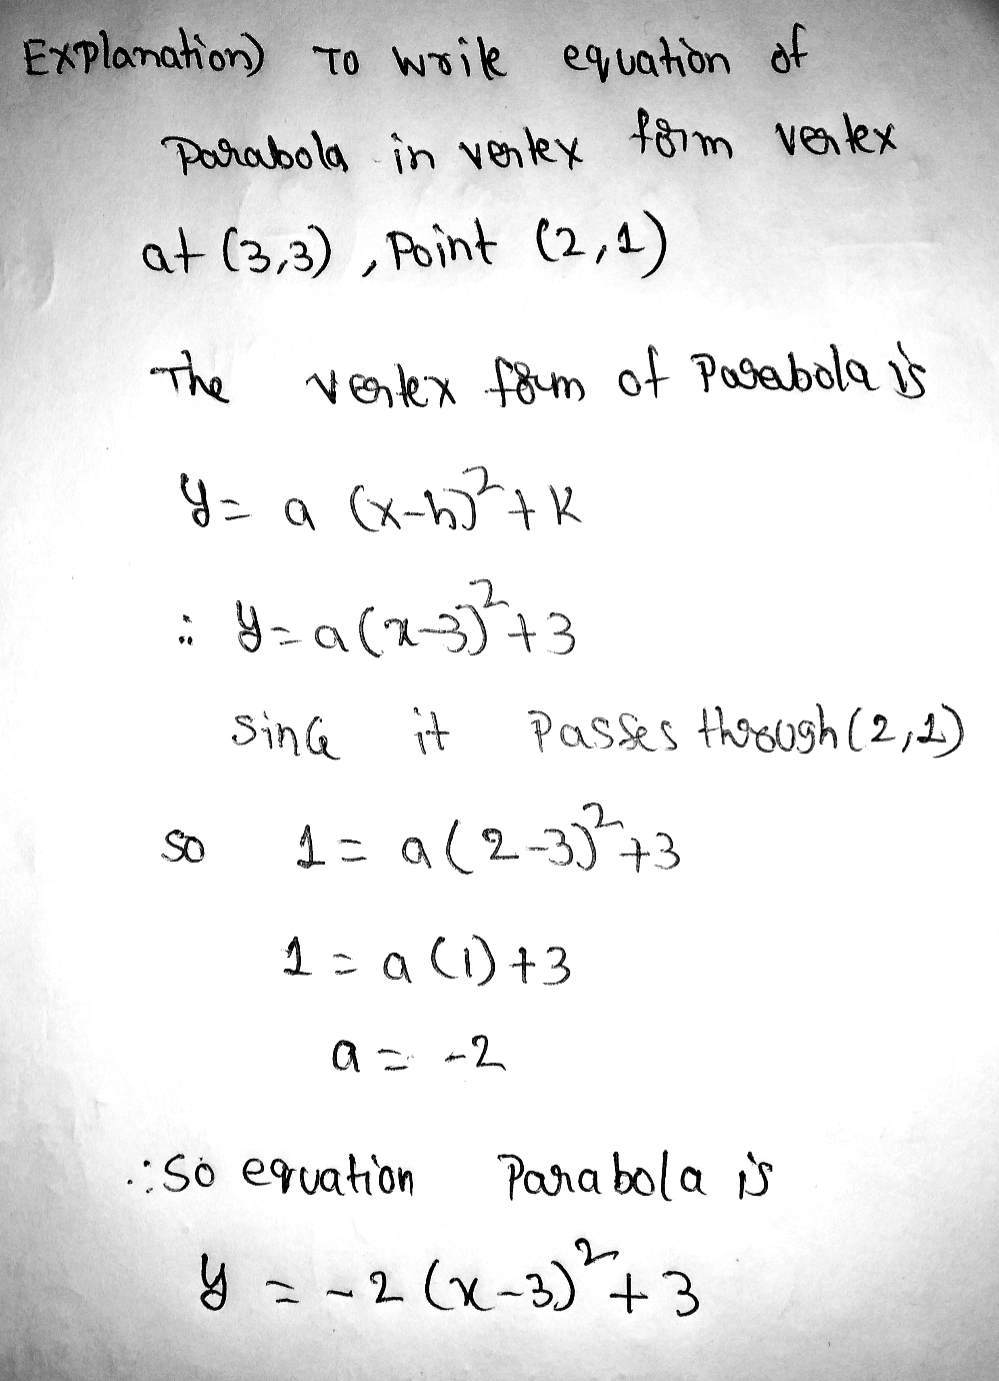 Explanation) To write equation of
Parabola in vertex form vertex
at (3,3) , Point (2,1)
The vertex form of Parabola is
y = a (x-h)² + K
∴ y = a(x-3)² + 3
Since it Passes through (2,1)
so 1 = a(2-3)² + 3
1 = a(1) + 3
a = -2
∴ So equation Parabola is
y = -2 (x-3)² + 3